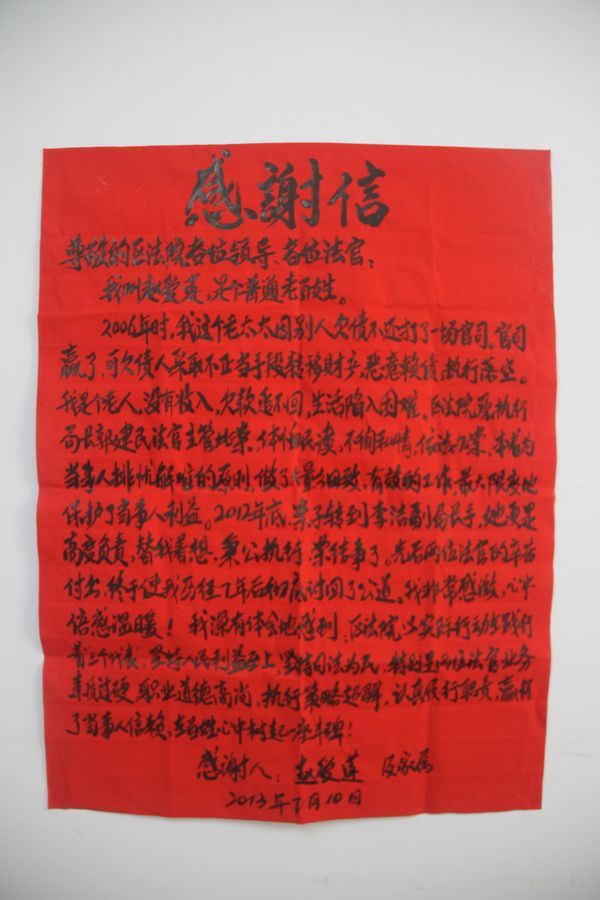 感謝信
尊敬的区法院各位领导、各位法官：
我叫赵爱莲，是个普通老百姓。
2006年时，我这个老太太因别人欠债不还打了一场官司，官司
赢了，可欠债人采取不正当手段转移财产，恶意赖债，执行落空。
我是个老人，没有收入，欠款追不回，生活陷入困难。区法院原执行
局长郭建民法官主管此案，体恤民谟，不徇私情，依法办案，本着为
当事人排忧解难的原则，做了大量细致、有效的工作，最大限度地
保护了当事人利益。2012年底，案子转到李洁副局长手，她更是
高度负责，替我着想，秉公执行，案结事了。先后两位法官的辛苦
付出，终于使我历经7年后彻底讨回了公道。我非常感激，心中
倍感温暖！我深有体会地感到，区法院以实际行动在践行
着三个代表，坚持人民利益至上，坚持司法为民，特别是两位法官业务
素质过硬，职业道德高尚，执行策略超群，认真履行职责，赢得
了当事人信赖，在百姓心中树起一座丰碑！
感谢人：赵爱莲 及家属
2013年7月10日